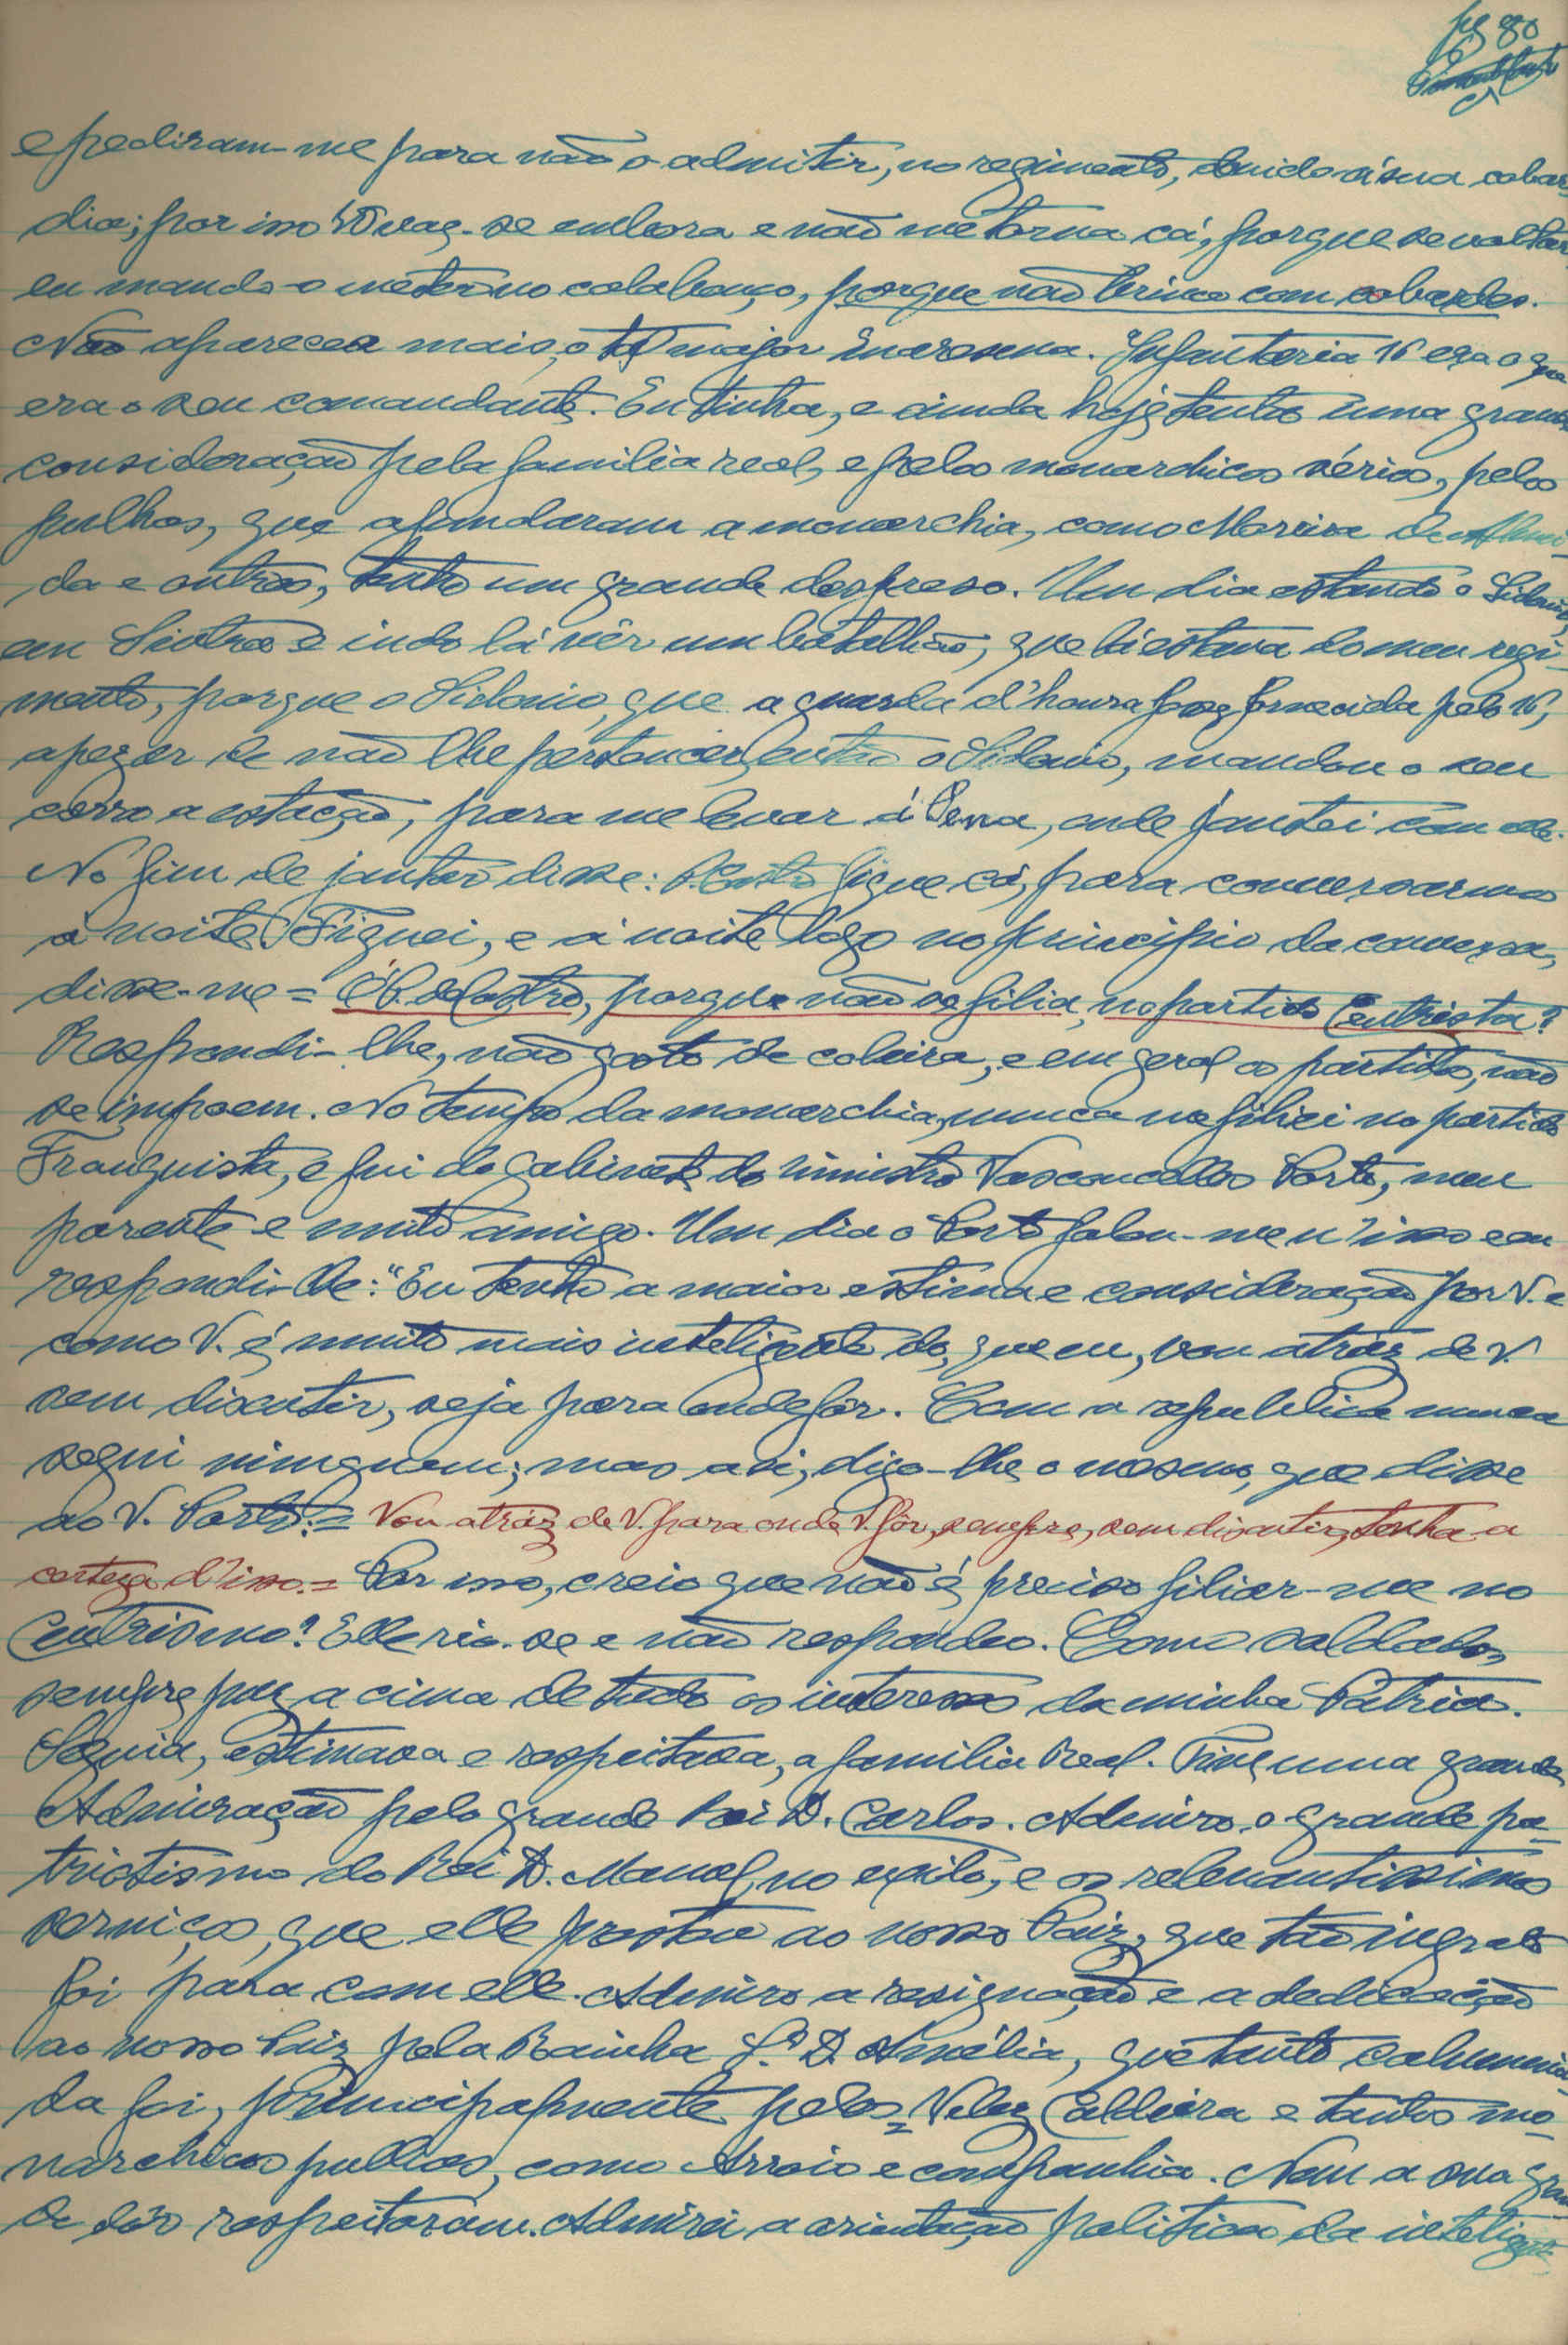 pg 80
e pediram-me para não o admitir, no regimento, devido á sua cobar-
dia; por isso vae-se embora e não me torna cá, porque se voltar
eu mando-o metter no calabouço, porque não brinco com cobardes.
Não appareceu mais, o tal major. Infantaria 16 era o que
era o seu comandante. Eu tinha, e ainda hoje tenho uma grande
consideração pela familia real, e pelos monarchicos sérios, pelos
pulhas, que afundaram a monarchia, como Moreira de Almei-
da e outros, tenho um grande despreso. Um dia estando o Sidonio,
em Sintra e indo lá vêr um batalhão, que lá estava do meu regi-
mento, porque o Sidonio, que a guarda d'honra fosse fornecida pelo 16,
apezar de não lhe pertencer, então o Sidonio, mandou o seu
carro a estação, para me levar á Pena, onde jantei com elle.
No fim de jantar disse: P. Castro fique cá, para conversarmos
á noite. Fiquei, e á noite logo no principio da conversa,
disse-me = Ó P. de Castro, porque não se filia, no partido Centrista?
Respondi-lhe, não gosto de coleira, e em geral os partidos, não
se impoem. No tempo da monarchia, nunca me filiei no partido
Franquista, e fui do gabinete do ministro Vasconcellos Porto, meu
parente e muito amigo. Um dia o Porto falou-me n'isso e eu
respondi-lhe: "Eu tenho a maior estima e consideração por V. e
como V. é muito mais inteligente do, que eu, vou atraz de V.
sem discutir, seja para onde fôr. Com a republica nunca
segui ninguem; mas a si, digo-lhe o mesmo, que disse
ao V. Porto: = Vou atraz de V. para onde V. fôr, sempre, sem discutir, tenha a
certeza d'isso. = Por isso, creio que não é preciso filiar-me no
Centrismo? Elle rio-se e não respondeo. Como soldado,
sempre puz acima de tudo os interesses da minha Patria.
Servia, estimava e respeitava, a familia Real. Tive uma grande
Admiração pelo grande Rei D. Carlos. Admiro, o grande pa-
triotismo do Rei D. Manoel, no exilio, e os relevantissimos
serviços, que elle prestou ao nosso Paiz, que tão ingrato
foi para com elle. Admiro a resignação e a dedicação
ao nosso Paiz pela Rainha Sª D. Amélia, que tanto calumnia-
da foi, principalmente pelos = Velez Caldeira e tantos mo-
narchicos pulhas, como Arroio e companhia. Nem a sua gran-
de dôr respeitaram. Admirei a orientação politica da inteligente